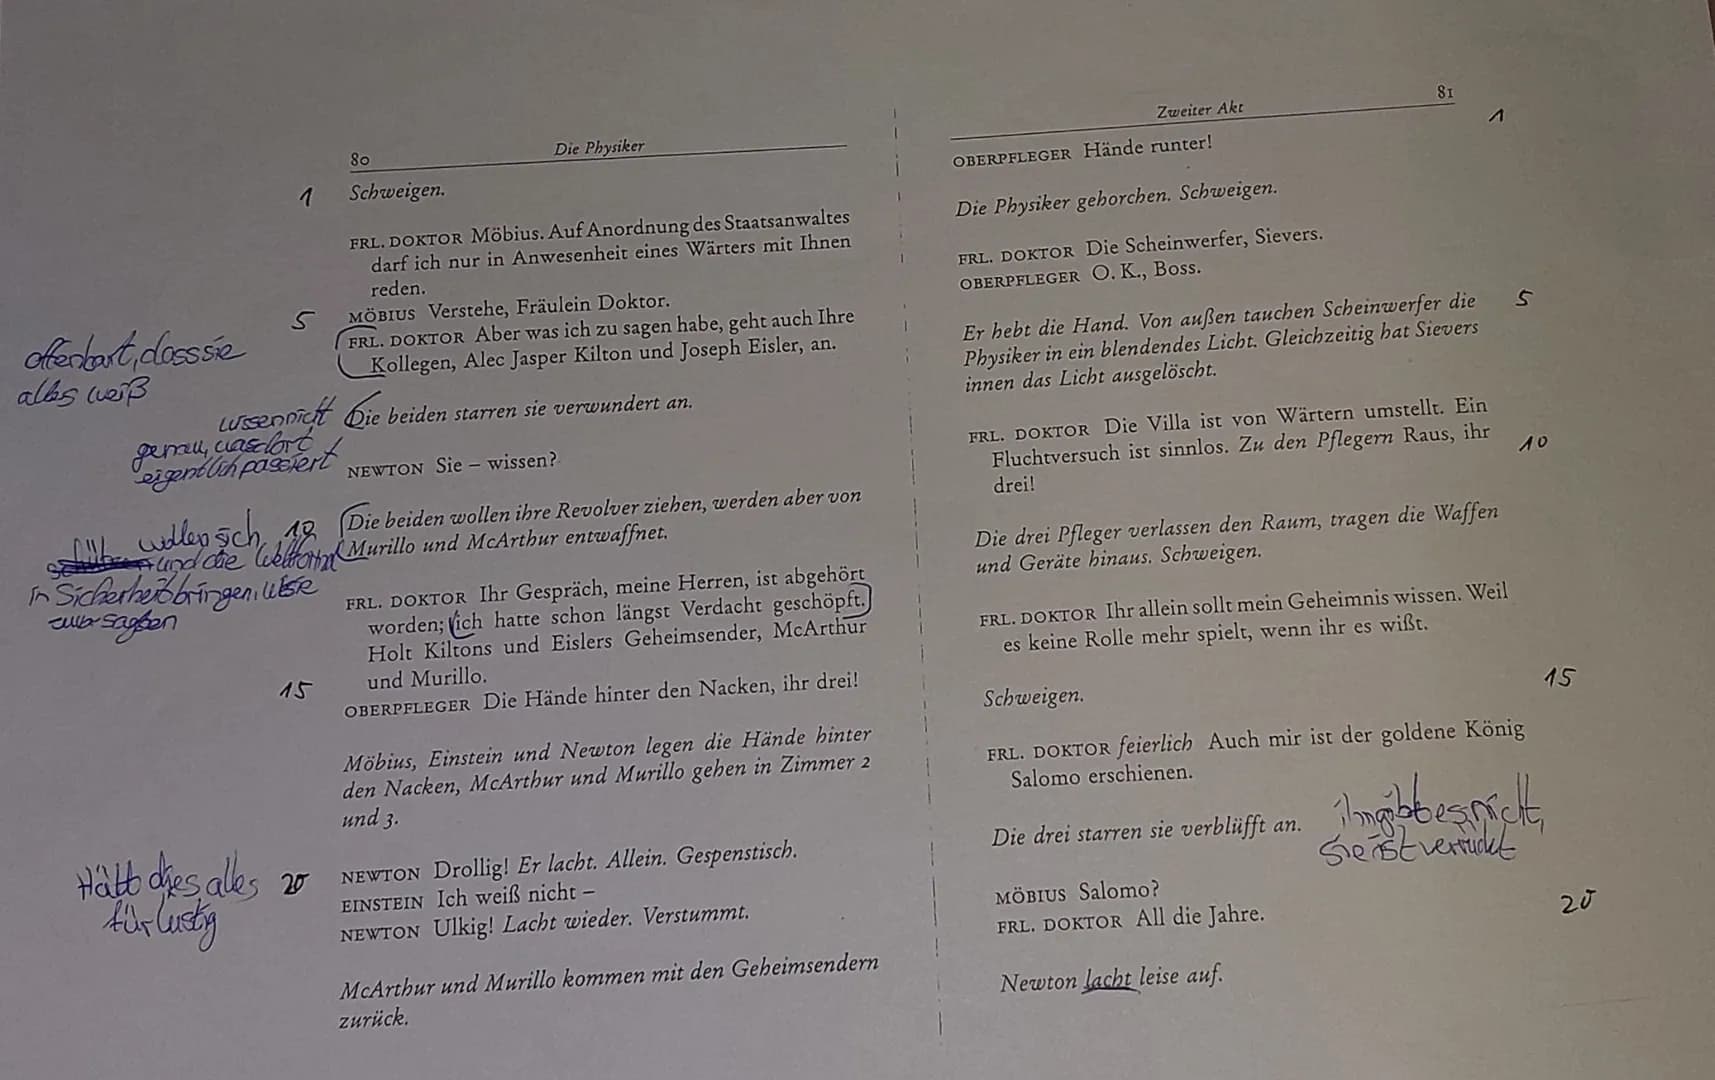 80 Die Physiker
1 Schweigen.
FRL. DOKTOR Möbius. Auf Anordnung des Staatsanwaltes
darf ich nur in Anwesenheit eines Wärters mit Ihnen
reden.
5 MÖBIUS Verstehe, Fräulein Doktor.
FRL. DOKTOR Aber was ich zu sagen habe, geht auch Ihre
Kollegen, Alec Jasper Kilton und Joseph Eisler, an.
offenbart, dass sie
alles weiß
Die beiden starren sie verwundert an.
wissen nicht
genau, was dort
eigentlich passiert
NEWTON Sie – wissen?
10 Die beiden wollen ihre Revolver ziehen, werden aber von
Murillo und McArthur entwaffnet.
wollen sich
und die Weltformel
in Sicherheit bringen,
FRL. DOKTOR Ihr Gespräch, meine Herren, ist abgehört
worden; ich hatte schon längst Verdacht geschöpft.
Holt Kiltons und Eislers Geheimsender, McArthur
und Murillo.
15 OBERPFLEGER Die Hände hinter den Nacken, ihr drei!
Möbius, Einstein und Newton legen die Hände hinter
den Nacken, McArthur und Murillo gehen in Zimmer 2
und 3.
20 NEWTON Drollig! Er lacht. Allein. Gespenstisch.
EINSTEIN Ich weiß nicht –
NEWTON Ulkig! Lacht wieder. Verstummt.
Hält dies alles
für lustig
McArthur und Murillo kommen mit den Geheimsendern
zurück.
Zweiter Akt 81
OBERPFLEGER Hände runter! 1
Die Physiker gehorchen. Schweigen.
FRL. DOKTOR Die Scheinwerfer, Sievers.
OBERPFLEGER O. K., Boss.
Er hebt die Hand. Von außen tauchen Scheinwerfer die 5
Physiker in ein blendendes Licht. Gleichzeitig hat Sievers
innen das Licht ausgelöscht.
FRL. DOKTOR Die Villa ist von Wärtern umstellt. Ein
Fluchtversuch ist sinnlos. Zu den Pflegern Raus, ihr 10
drei!
Die drei Pfleger verlassen den Raum, tragen die Waffen
und Geräte hinaus. Schweigen.
FRL. DOKTOR Ihr allein sollt mein Geheimnis wissen. Weil
es keine Rolle mehr spielt, wenn ihr es wißt.
Schweigen. 15
FRL. DOKTOR feierlich Auch mir ist der goldene König
Salomo erschienen.
Die drei starren sie verblüfft an.
ihn gibt es nicht,
sie ist verrückt
MÖBIUS Salomo?
FRL. DOKTOR All die Jahre. 20
Newton lacht leise auf.